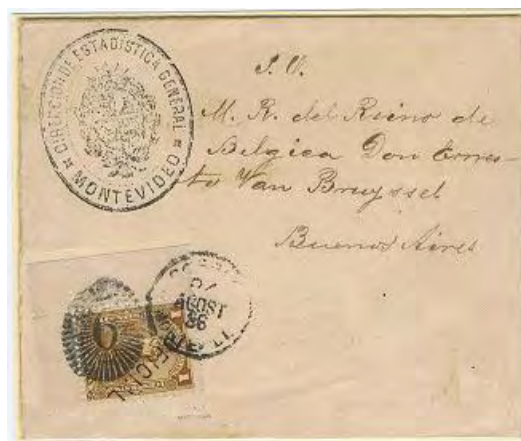 DIRECCION DE ESTADISTICA GENERAL
MONTEVIDEO
M. R. del Reino de
Belgica Don Ernes-
to Van Bruyssel
Buenos Aires
AGOST
86
6
OFICIAL
1
1